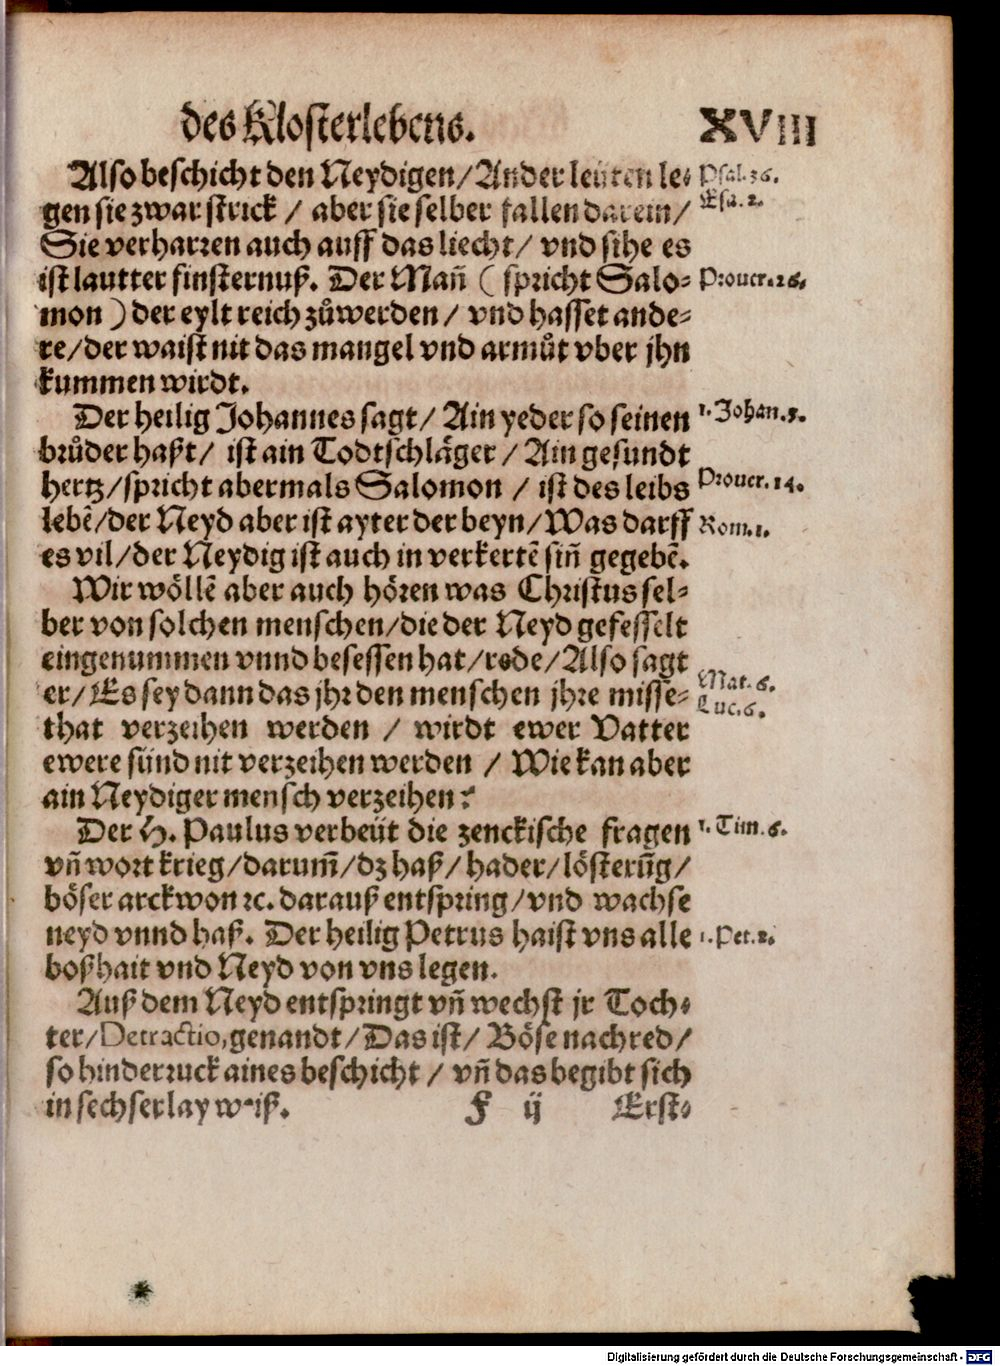 des Klosterlebens. XVIII
Also beschicht den Neydigen/Ander leüten le- Psal.36.
gen sie zwar strick / aber sie selber fallen darein/ Esa. 2.
Sie verharren auch auff das liecht/ vnd sihe es
ist lautter finsternuß. Der Mañ ( spricht Salo- Prouer.26.
mon ) der eylt reich zůwerden / vnd hasset ande-
re/der waist nit das mangel vnd armůt vber jhn
kummen wirdt.
Der heilig Johannes sagt/ Ain yeder so seinen 1. Johan.3.
brůder haßt/ ist ain Todtschläger / Ain gesundt
hertz/spricht abermals Salomon / ist des leibs Prouer.14.
lebē/der Neyd aber ist ayter der beyn/Was darff Rom.1.
es vil/der Neydig ist auch in verkertē siñ gegebē.
Wir wöllē aber auch hören was Christus sel-
ber von solchen menschen/die der Neyd gefesselt
eingenummen vnnd besessen hat/rede/Also sagt
er/Es sey dann das jhr den menschen jhre misse- Mat. 6.
that verzeihen werden / wirdt ewer Vatter Luc.6.
ewere sünd nit verzeihen werden / Wie kan aber
ain Neydiger mensch verzeihen?
Der H. Paulus verbeüt die zenckische fragen 1. Tim. 6.
vñ wort krieg/darum̃/dz haß/hader/lösterũg/
böser arckwon ꝛc. darauß entspring/vnd wachse
neyd vnnd haß. Der heilig Petrus haist vns alle 1. Pet.2.
boßhait vnd Neyd von vns legen.
Auß dem Neyd entspringt vñ wechst jr Toch-
ter/Detractio,genandt/Das ist/ Böse nachred/
so hinderruck aines beschicht / vñ das begibt sich
in sechserlay weiß. F ij Erst-
Digitalisierung gefördert durch die Deutsche Forschungsgemeinschaft - DFG